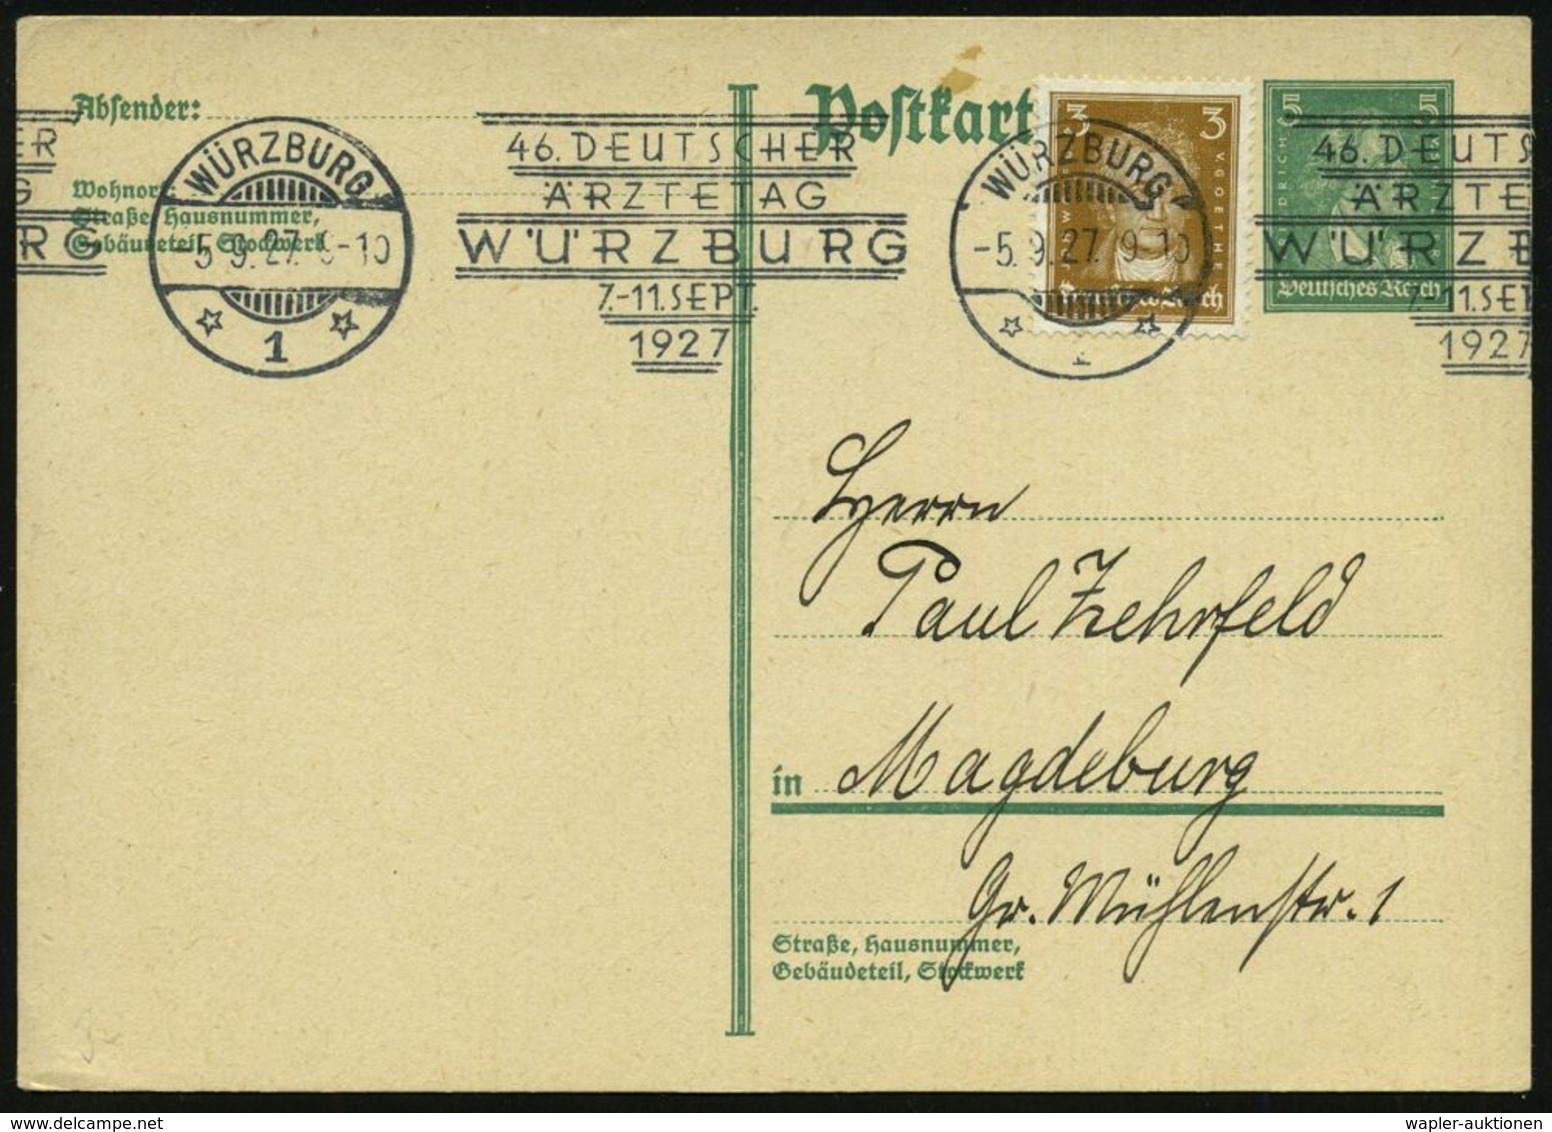 Absender:
Wohnort:
Straße, Hausnummer,
Gebäudeteil, Stockwerk
ER
G
RG
WÜRZBURG
-5.9.27. 9-10
1
46. DEUTSCHER
ÄRZTETAG
WÜRZBURG
7.-11. SEPT.
1927
Postkart
WÜRZBURG
-5.9.27. 9-10
1
3 3
V. GOETHE
Deutsches Reich
5 5
Deutsches Reich
46. DEUTS
ÄRZTE
WÜRZB
7.-11. SE
1927
Herrn
Paul Zehrfeld
in Magdeburg
Gr. Mühlenstr. 1
Straße, Hausnummer,
Gebäudeteil, Stockwerk
wapler-auktionen